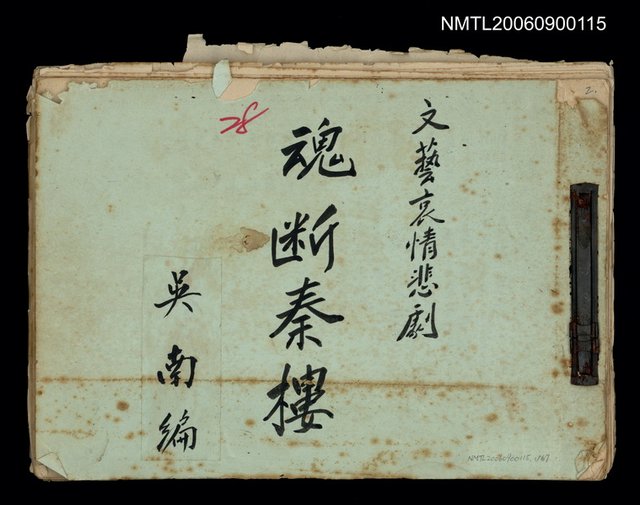 NMTL20060900115
2.
28
文藝哀情悲劇
魂断秦樓
吳南編
NMTL20060900115